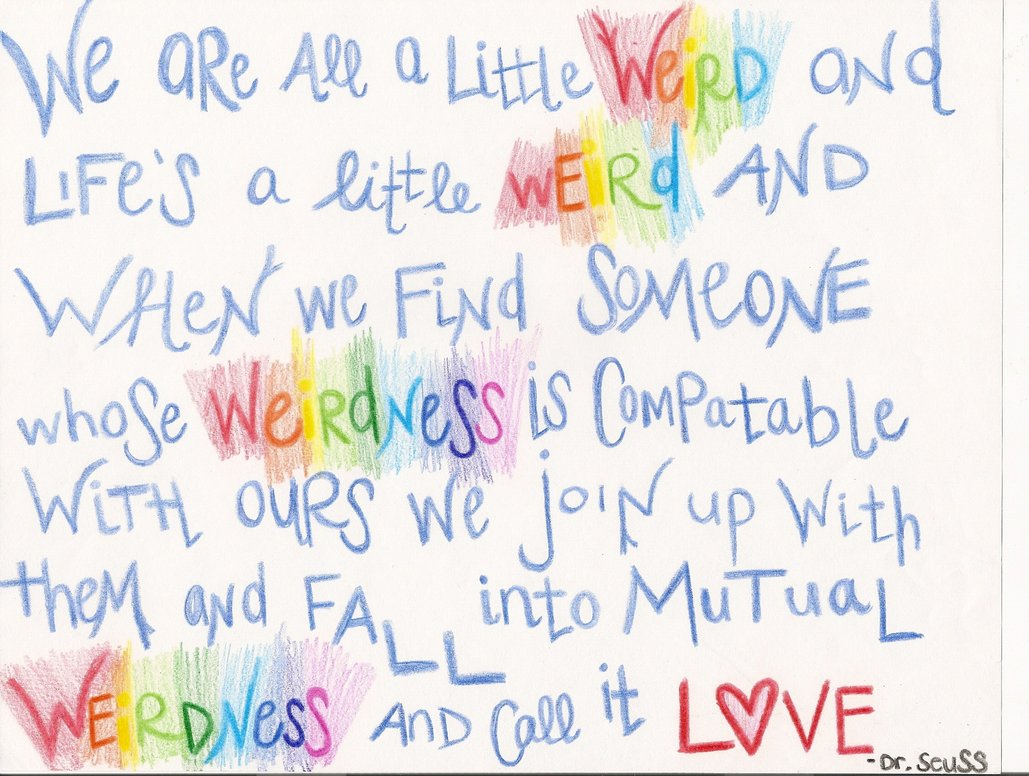 We are All a Little Weird and
LiFe's a little wEiRd AND
WHeN we FiNd SOMeONE
whose WeiRdNeSS is ComPatable
WiTH OURS we joiN up with
theM and FALL into MuTuaL
WEiRDNeSS AND Call it LOVE
-Dr. SeuSS